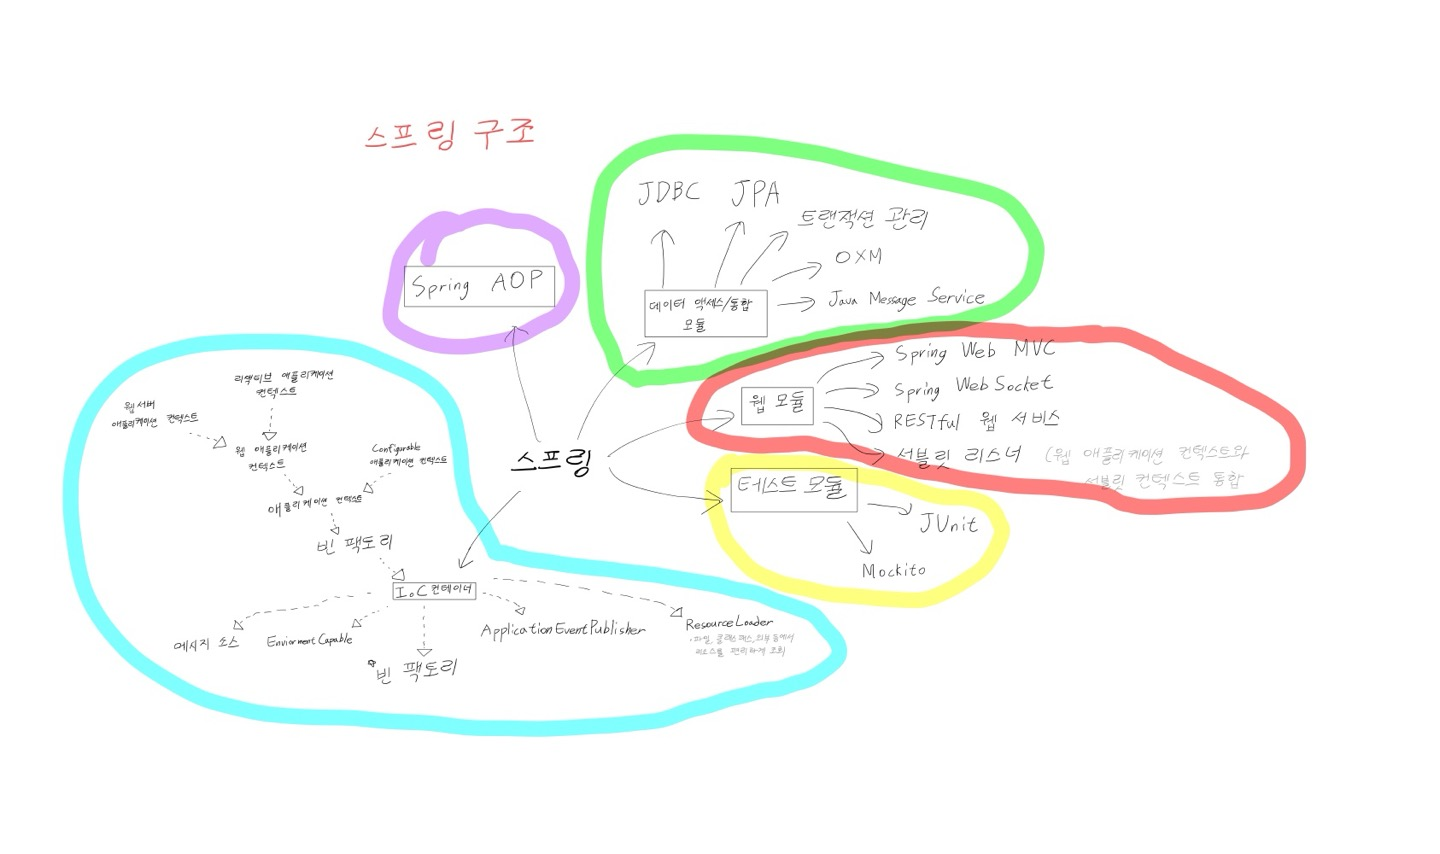 스프링 구조
JDBC JPA
트랜잭션 관리
OXM
Java Message Service
데이터 액세스/통합
모듈
Spring AOP
Spring Web MVC
Spring WebSocket
RESTful 웹 서비스
서블릿 리스너 (웹 애플리케이션 컨텍스트와
서블릿 컨텍스트 통합
웹 모듈
스프링
테스트 모듈
JUnit
Mockito
리액티브 애플리케이션
컨텍스트
웹서버
애플리케이션 컨텍스트
웹 애플리케이션
컨텍스트
Configurable
애플리케이션 컨텍스트
애플리케이션 컨텍스트
빈 팩토리
IoC 컨테이너
메시지 소스
EnviormentCapable
빈 팩토리
ApplicationEventPublisher
ResourceLoader
-파일, 클래스패스, 외부 등에서
리소스를 편리하게 조회